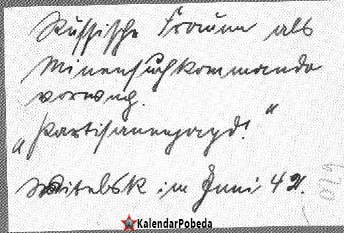 Russische Frauen als
Minensuchkommando
vorweg.
"Partisanenjagd!"
Witebsk im Juni 42.
KalendarPobeda